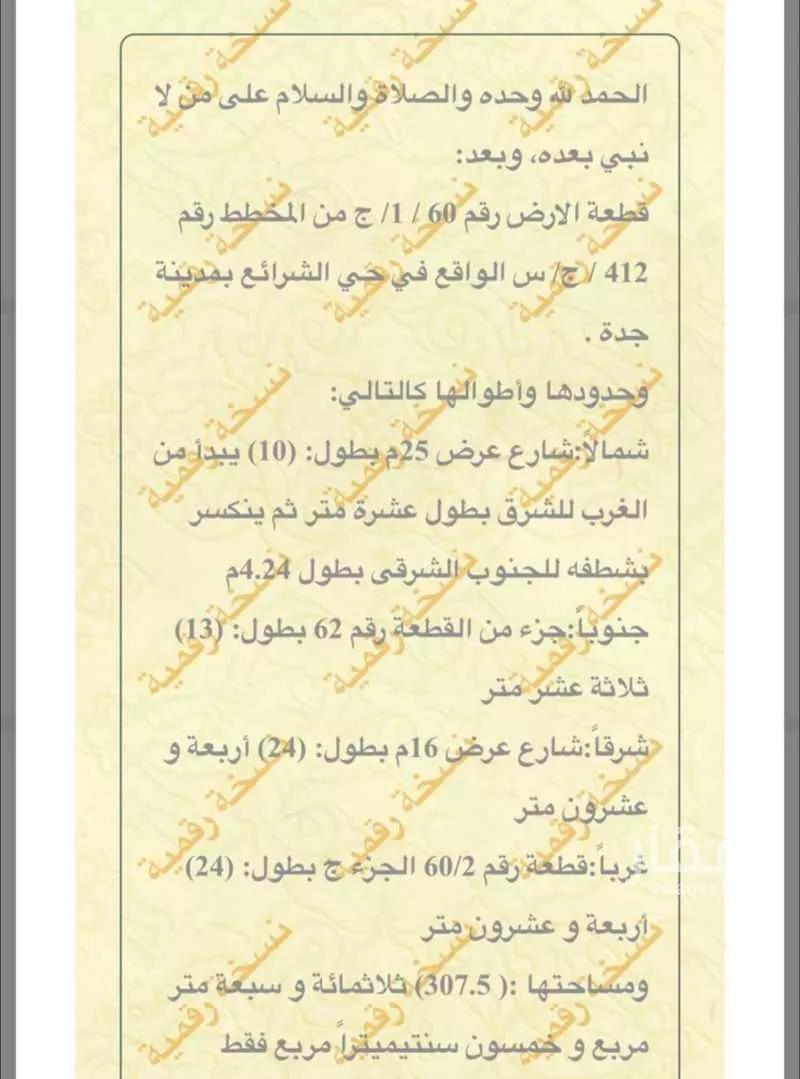 الحمد لله وحده والصلاة والسلام على من لا
نبي بعده، وبعد:
قطعة الارض رقم 60 / 1/ ج من المخطط رقم
412 / ج/ س الواقع في حي الشرائع بمدينة
جدة .
وحدودها وأطوالها كالتالي:
شمالاً:شارع عرض 25م بطول: (10) يبدأ من
الغرب للشرق بطول عشرة متر ثم ينكسر
بشطفه للجنوب الشرقى بطول 4.24م
جنوباً:جزء من القطعة رقم 62 بطول: (13)
ثلاثة عشر متر
شرقاً:شارع عرض 16م بطول: (24) أربعة و
عشرون متر
غرباً:قطعة رقم 60/2 الجزء ج بطول: (24)
أربعة و عشرون متر
ومساحتها :( 307.5) ثلاثمائة و سبعة متر
مربع و خمسون سنتيميتراً مربع فقط
نسخة رقمية
عقار